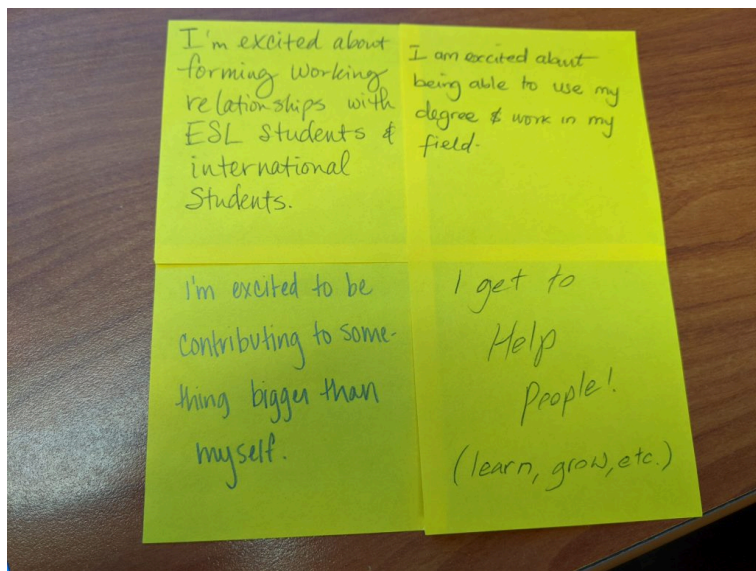 I'm excited about
forming working
relationships with
ESL Students &
international
Students.
I am excited about
being able to use my
degree & work in my
field.
I'm excited to be
contributing to some-
thing bigger than
myself.
I get to
Help
People!
(learn, grow, etc.)